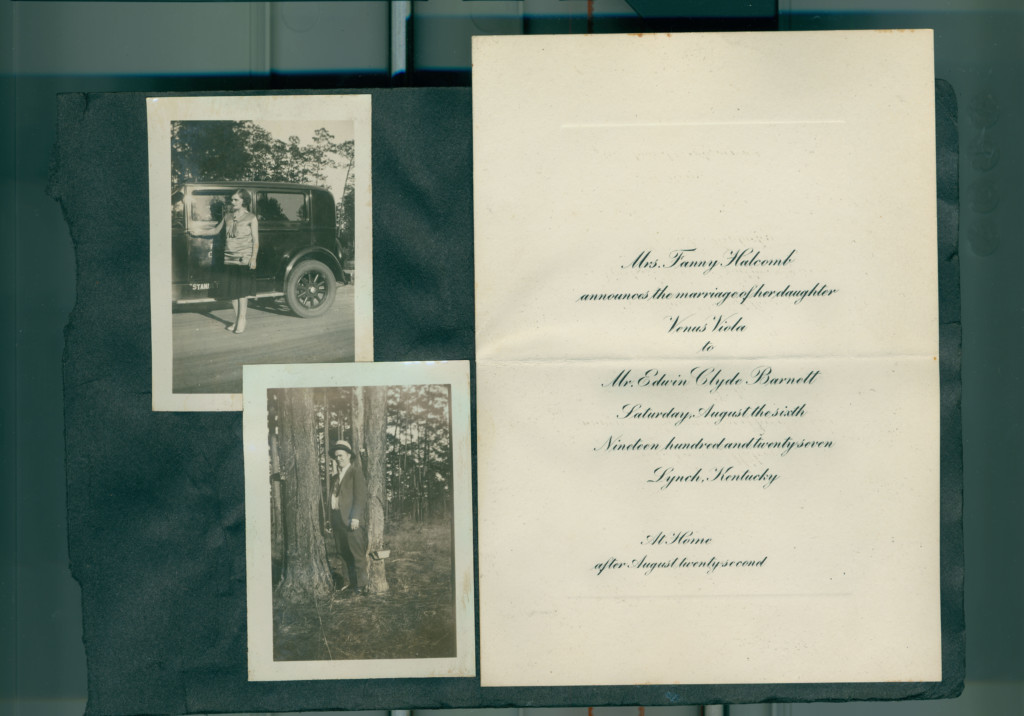 STAN
Mrs. Fanny Halcomb
announces the marriage of her daughter
Venus Viola
to
Mr. Edwin Clyde Barnett
Saturday, August the sixth
Nineteen hundred and twenty seven
Lynch, Kentucky
At Home
after August twenty second